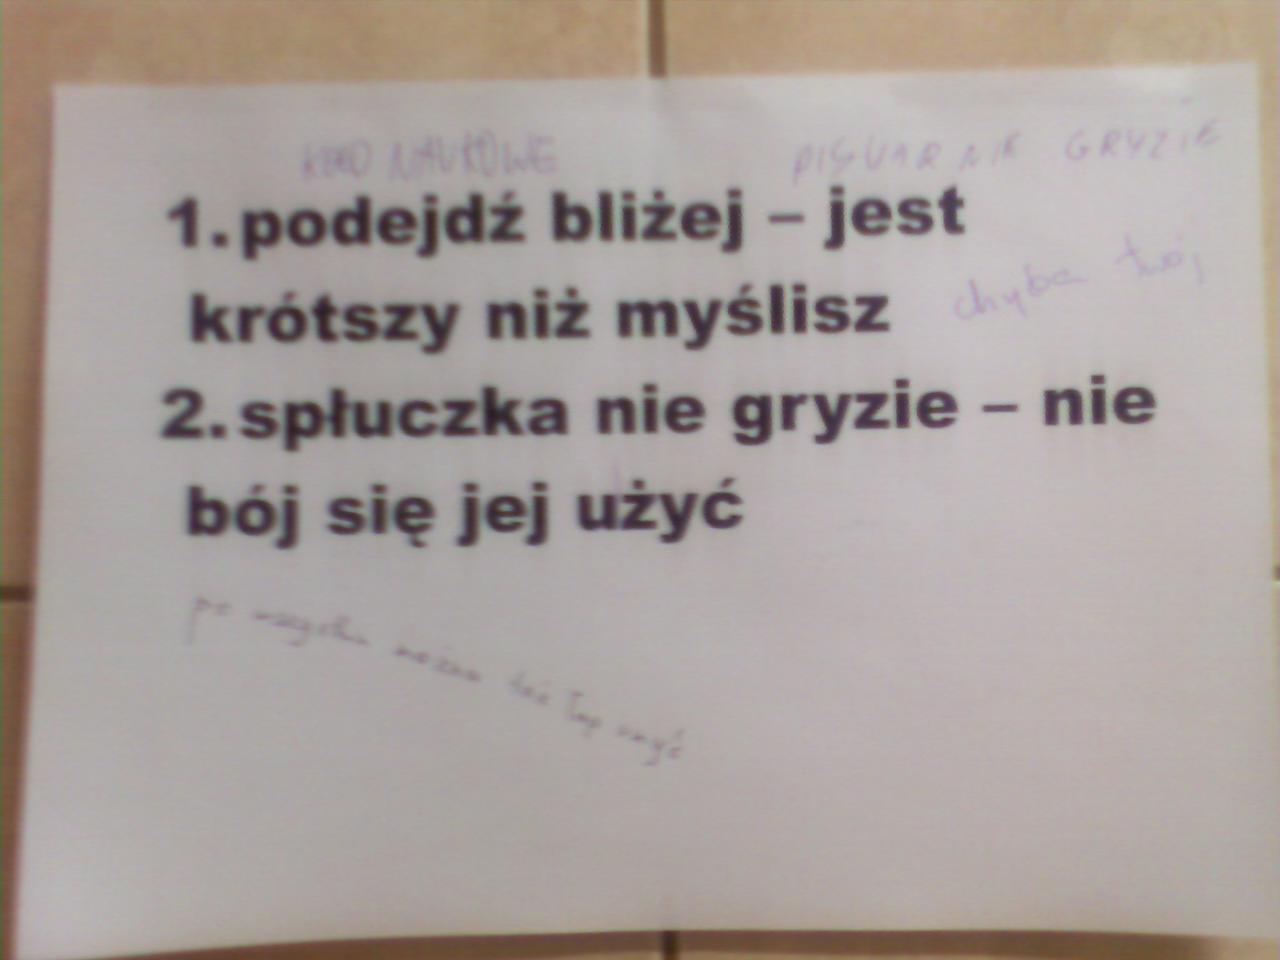 KOŁO NAUKOWE PISUAR NIE GRYZIE
1. podejdź bliżej – jest
krótszy niż myślisz chyba twój
2. spłuczka nie gryzie – nie
bój się jej użyć
po wszystkim można też łapy umyć